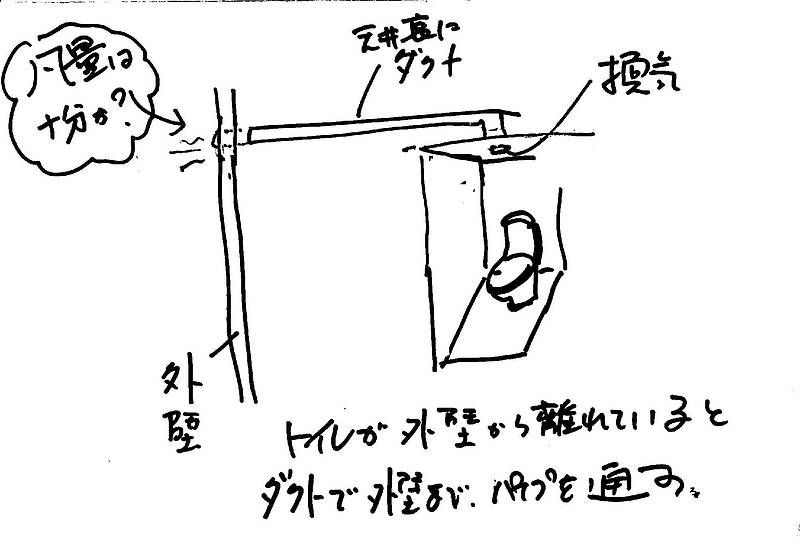 風量は
十分か?
天井裏に
ダクト
換気
外
壁
トイレが外壁から離れていると
ダクトで外壁まで、パイプを通す。